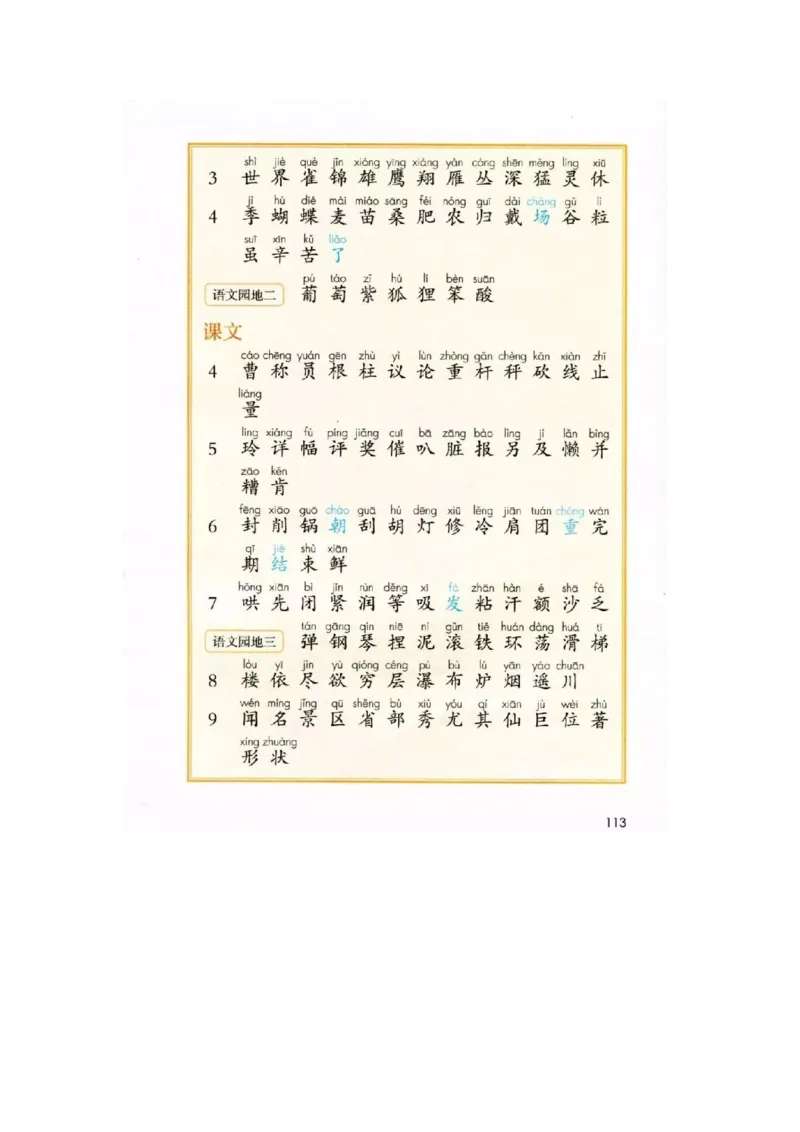 shì jiè què jǐn xióng yīng xiáng yàn cóng shēn měng líng xiū
3 世 界 雀 锦 雄 鹰 翔 雁 丛 深 猛 灵 休
jì hú dié mài miáo sāng féi nóng guī dài cháng gǔ lì
4 季 蝴 蝶 麦 苗 桑 肥 农 归 戴 场 谷 粒
suī xīn kǔ liǎo
虽 辛 苦 了
pú táo zǐ hú li bèn suān
语文园地二 葡 萄 紫 狐 狸 笨 酸
课文
cáo chēng yuán gēn zhù yì lùn zhòng gǎn chèng kǎn xiàn zhǐ
4 曹 称 员 根 柱 议 论 重 杆 秤 砍 线 止
liàng
量
líng xiáng fú píng jiǎng cuī bā zāng bào lìng jí lǎn bìng
5 玲 详 幅 评 奖 催 叭 脏 报 另 及 懒 并
zāo kěn
糟 肯
fēng xiāo guō cháo guā hú dēng xiū lěng jiān tuán chóng wán
6 封 削 锅 朝 刮 胡 灯 修 冷 肩 团 重 完
qī jié shù xiān
期 结 束 鲜
hōng xiān bì jǐn rùn děng xī fà zhān hàn é shā fá
7 哄 先 闭 紧 润 等 吸 发 粘 汗 额 沙 乏
tán gāng qín niē ní gǔn tiě huán dàng huá tī
语文园地三 弹 钢 琴 捏 泥 滚 铁 环 荡 滑 梯
lóu yī jìn yù qióng céng pù bù lú yān yáo chuān
8 楼 依 尽 欲 穷 层 瀑 布 炉 烟 遥 川
wén míng jǐng qū shěng bù xiù yóu qí xiān jù wèi zhù
9 闻 名 景 区 省 部 秀 尤 其 仙 巨 位 著
xíng zhuàng
形 状
113